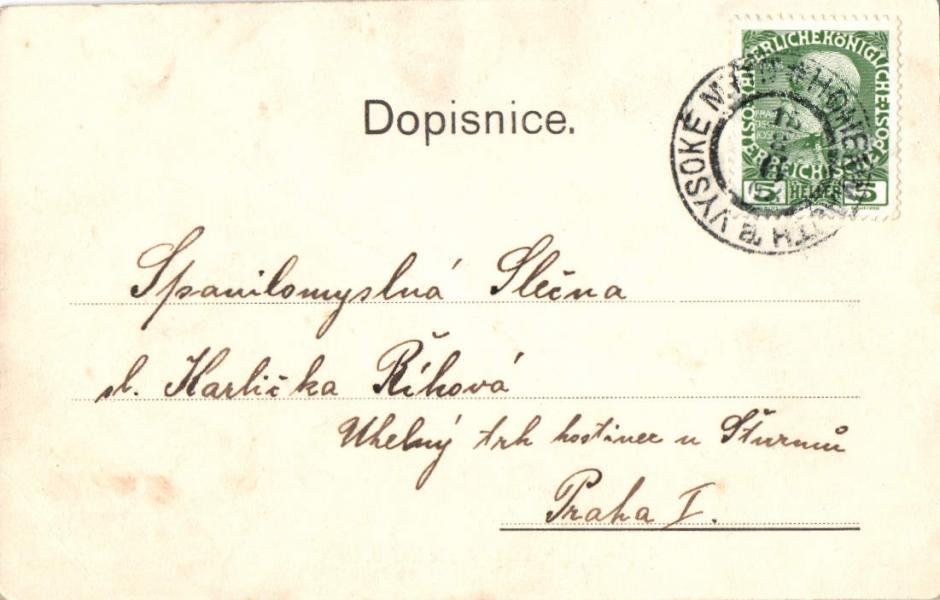 Dopisnice.
KAISERLICHE KÖNIGLICHE
5 HELLER 5
VYSOKÉ MÝTO HOHENMAUTH
Spanilomyslná Slečna
sl. Karlička Říhová
Uhelný trh hostinec u Šturmů
Praha I.